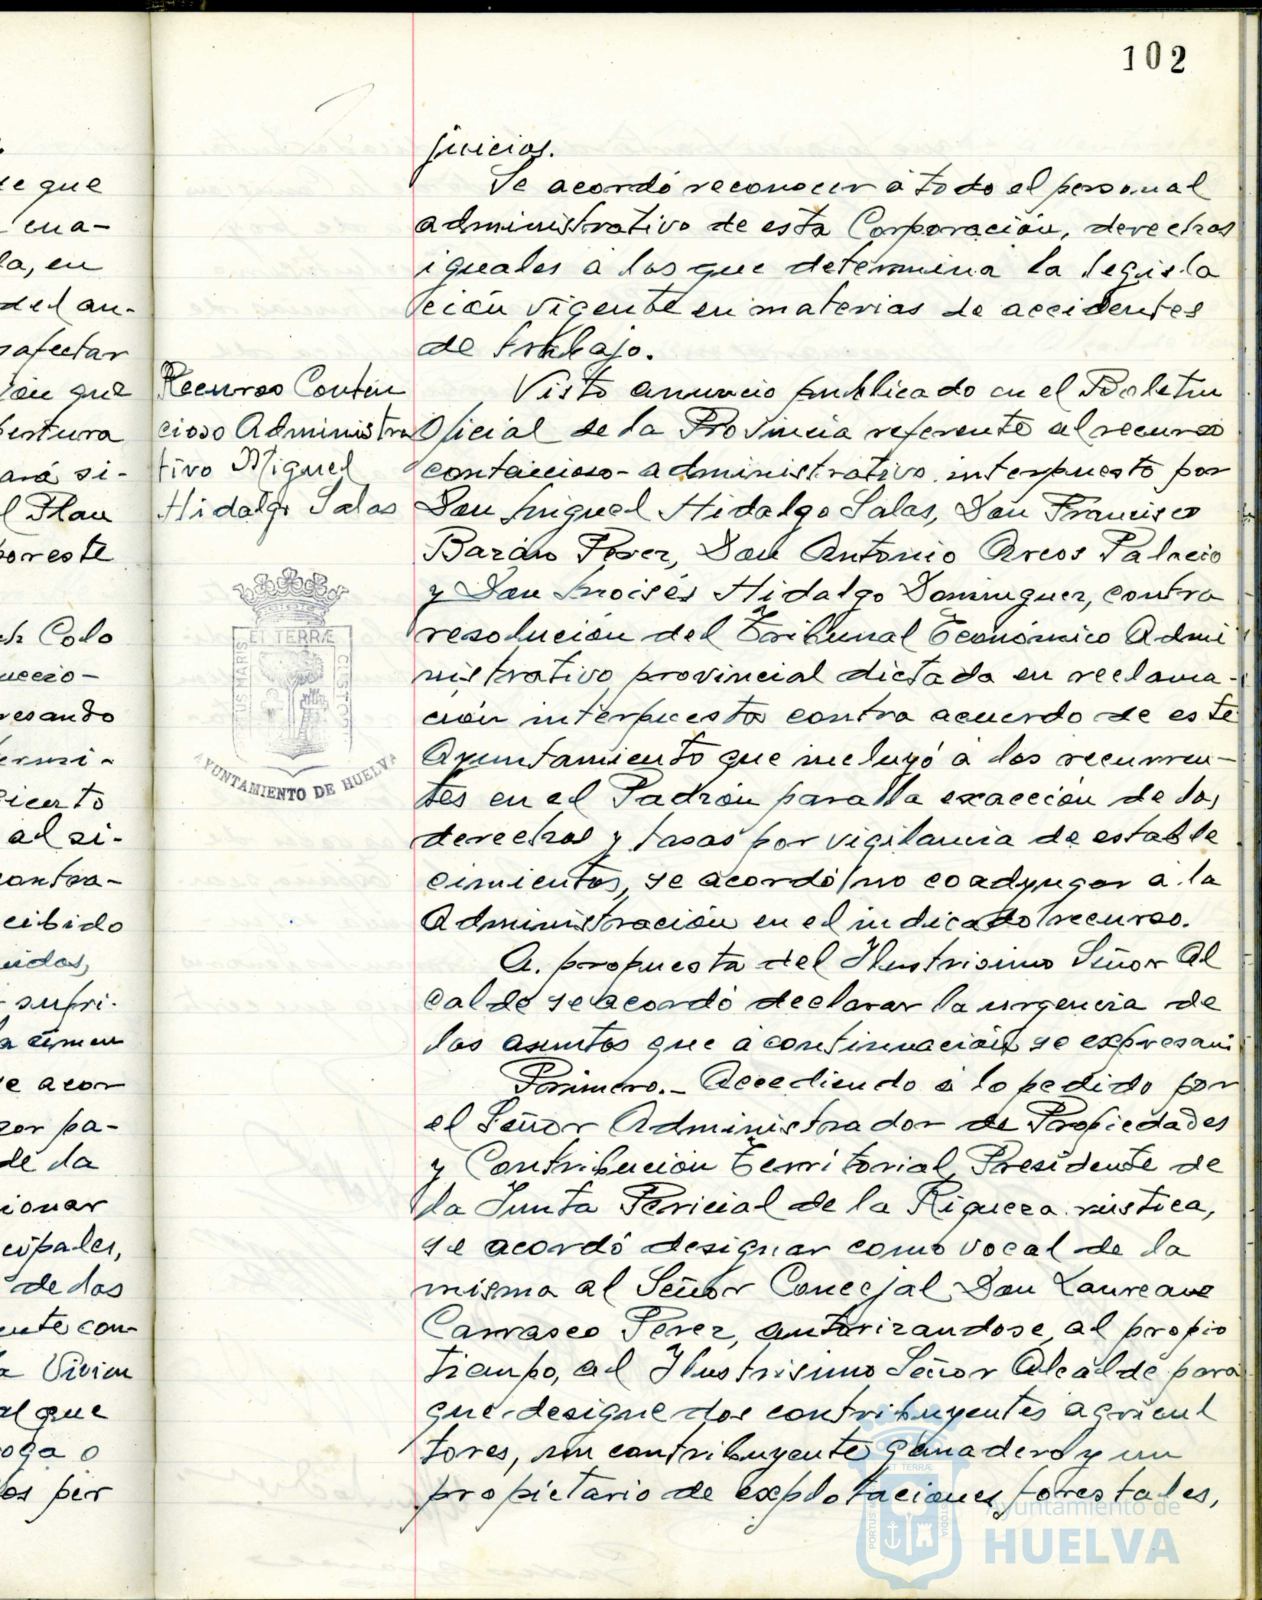 102
juicios.
Se acordó reconocer á todo el personal
administrativo de esta Corporación, derechos
iguales á los que determina la legisla
ción vigente en materias de accidentes
de trabajo.
Recurso Conten
cioso Administra
tivo Miguel
Hidalgo Salas
Visto anuncio publicado en el Boletin
Oficial de la Provincia referente al recurso
contencioso-administrativo interpuesto por
Don Miguel Hidalgo Salas, Don Francisco
Bazán Perez, Don Antonio Arcos Palacio
y Don Moisés Hidalgo Dominguez, contra
resolución del Tribunal Económico Admi
nistrativo provincial dictada en reclama-
ción interpuesta contra acuerdo de este
Ayuntamiento que incluyó á los recurren-
tes en el Padrón para la exacción de los
derechos y tasas por vigilancia de estable
cimientos, se acordó no coadyugar á la
Administración en el indicado recurso.
A propuesta del Ilustrisimo Señor Al
calde se acordó declarar la urgencia de
los asuntos que á continuación se expresan:
Primero.- Accediendo á lo pedido por
el Señor Administrador de Propiedades
y Contribución Territorial, Presidente de
la Junta Pericial de la Riqueza rústica,
se acordó designar como vocal de la
misma al Señor Concejal Don Laureano
Carrasco Perez, autorizandose, al propio
tiempo, al Ilustrisimo Señor Alcalde para
que designe dos contribuyentes agricul
tores, un contribuyente ganadero y un
propietario de explotaciones forestales,
ET TERRÆ
PORTUS MARIS
CUSTODIA
AYUNTAMIENTO DE HUELVA
de que
cua-
la, en
del an-
afectar
ión que
pertura
ará si-
l Plan
por este
Colo
resando
al si-
contra-
cibido
sufri-
se acor
zar pa-
de la
cionar
cipales,
de los
ente con-
a Vivien
al que
oga o
os per
Ayuntamiento de
HUELVA